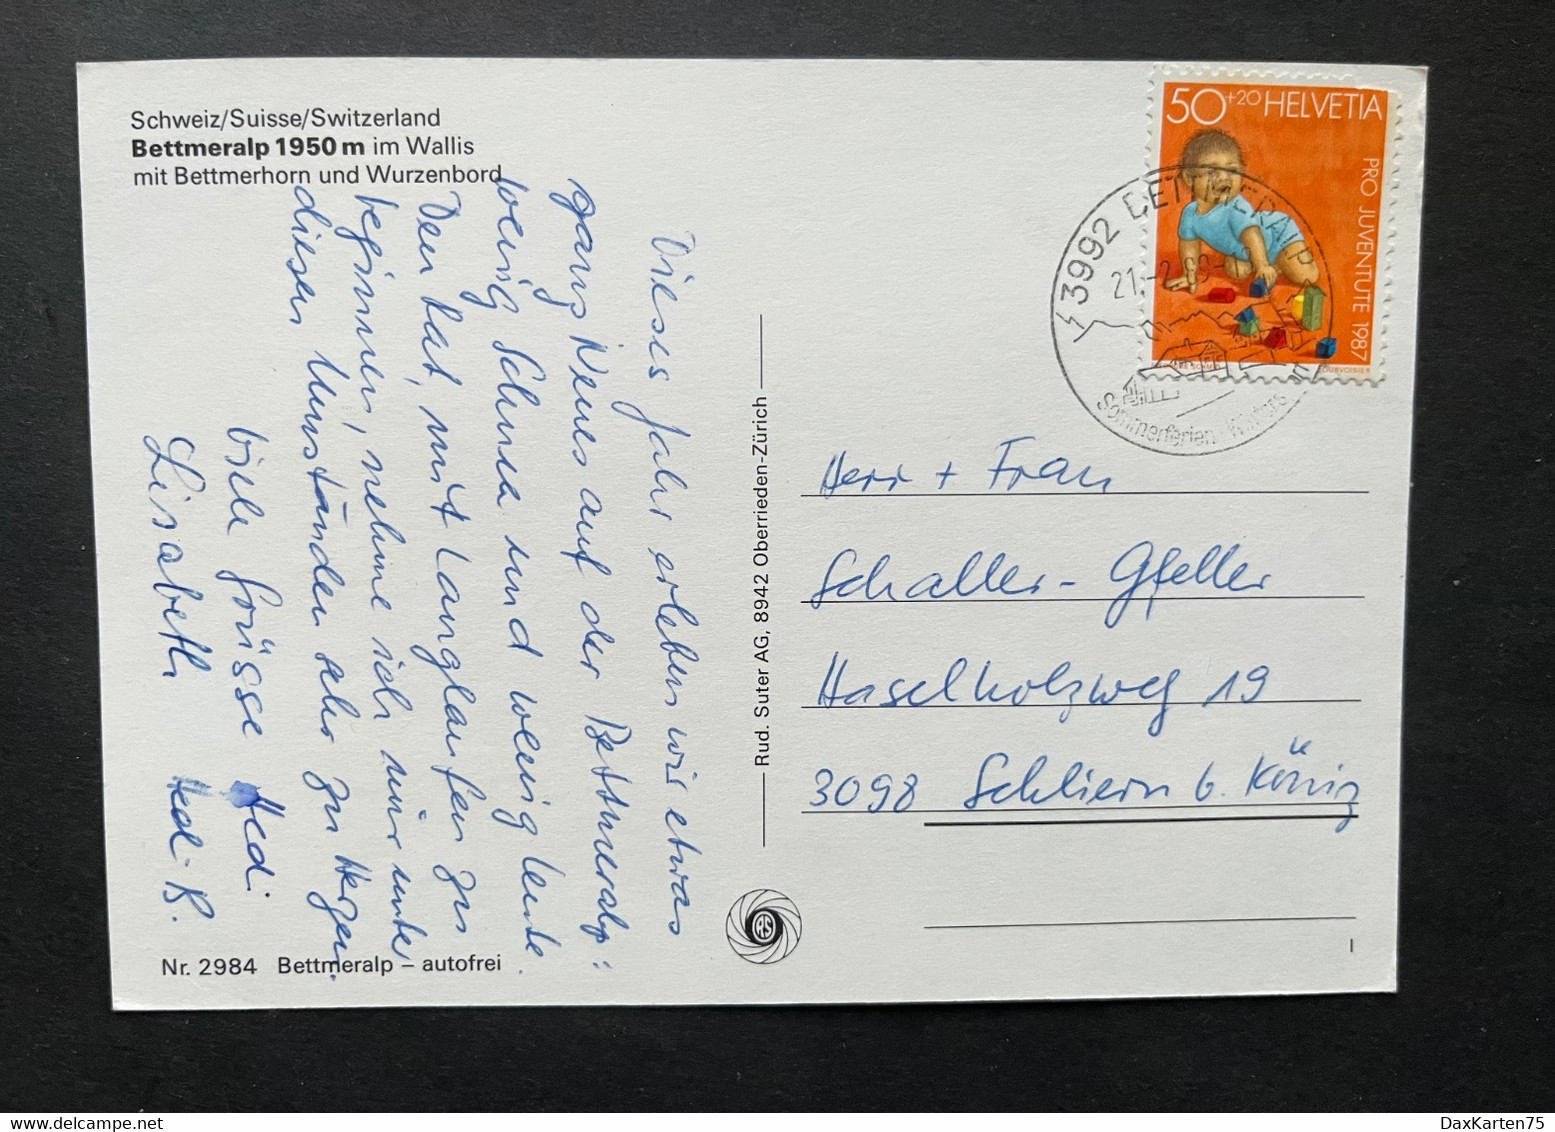 Schweiz/Suisse/Switzerland
Bettmeralp 1950 m im Wallis
mit Bettmerhorn und Wurzenbord
Dieses Jahr erleben wir etwas
ganz Neues auf der Bettmeralp:
wenig Schnee und wenig Leute.
Den hat, mit Langlaufen zu
beginnen, nehme ich mir unter
diesen Umständen sehr zu Herzen.
Viele Grüsse Hedi
Lisabeth
Nr. 2984 Bettmeralp – autofrei
Rud. Suter AG, 8942 Oberrieden-Zürich
RS
50+20 HELVETIA
PRO JUVENTUTE 1987
COURVOISIER
3992 BETTMERALP
21.-2.
Sommerferien
Herr + Frau
Schaller-Gfeller
Haselholzweg 19
3098 Schliern b. Köniz
I
DaxKarten75